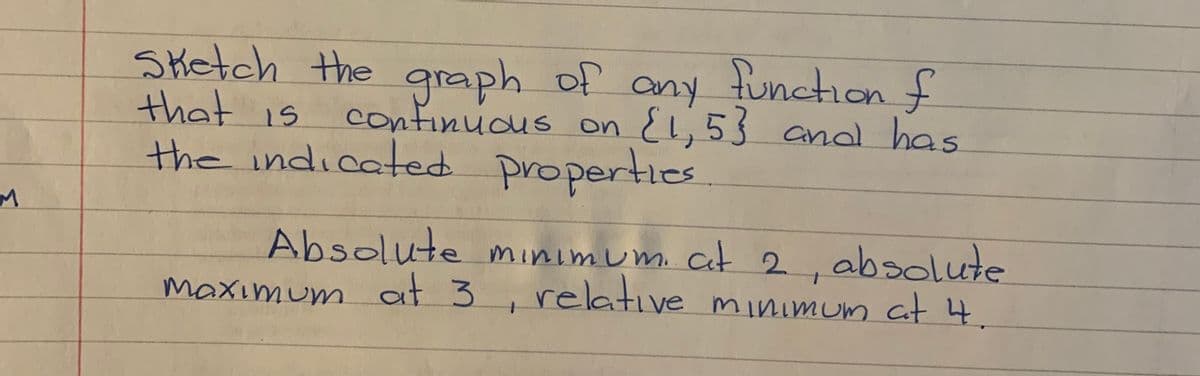 Sketch the graph of any function f
that is continuous on {1,5} and has
the indicated properties.
M
Absolute minimum at 2, absolute
maximum at 3, relative minimum at 4.